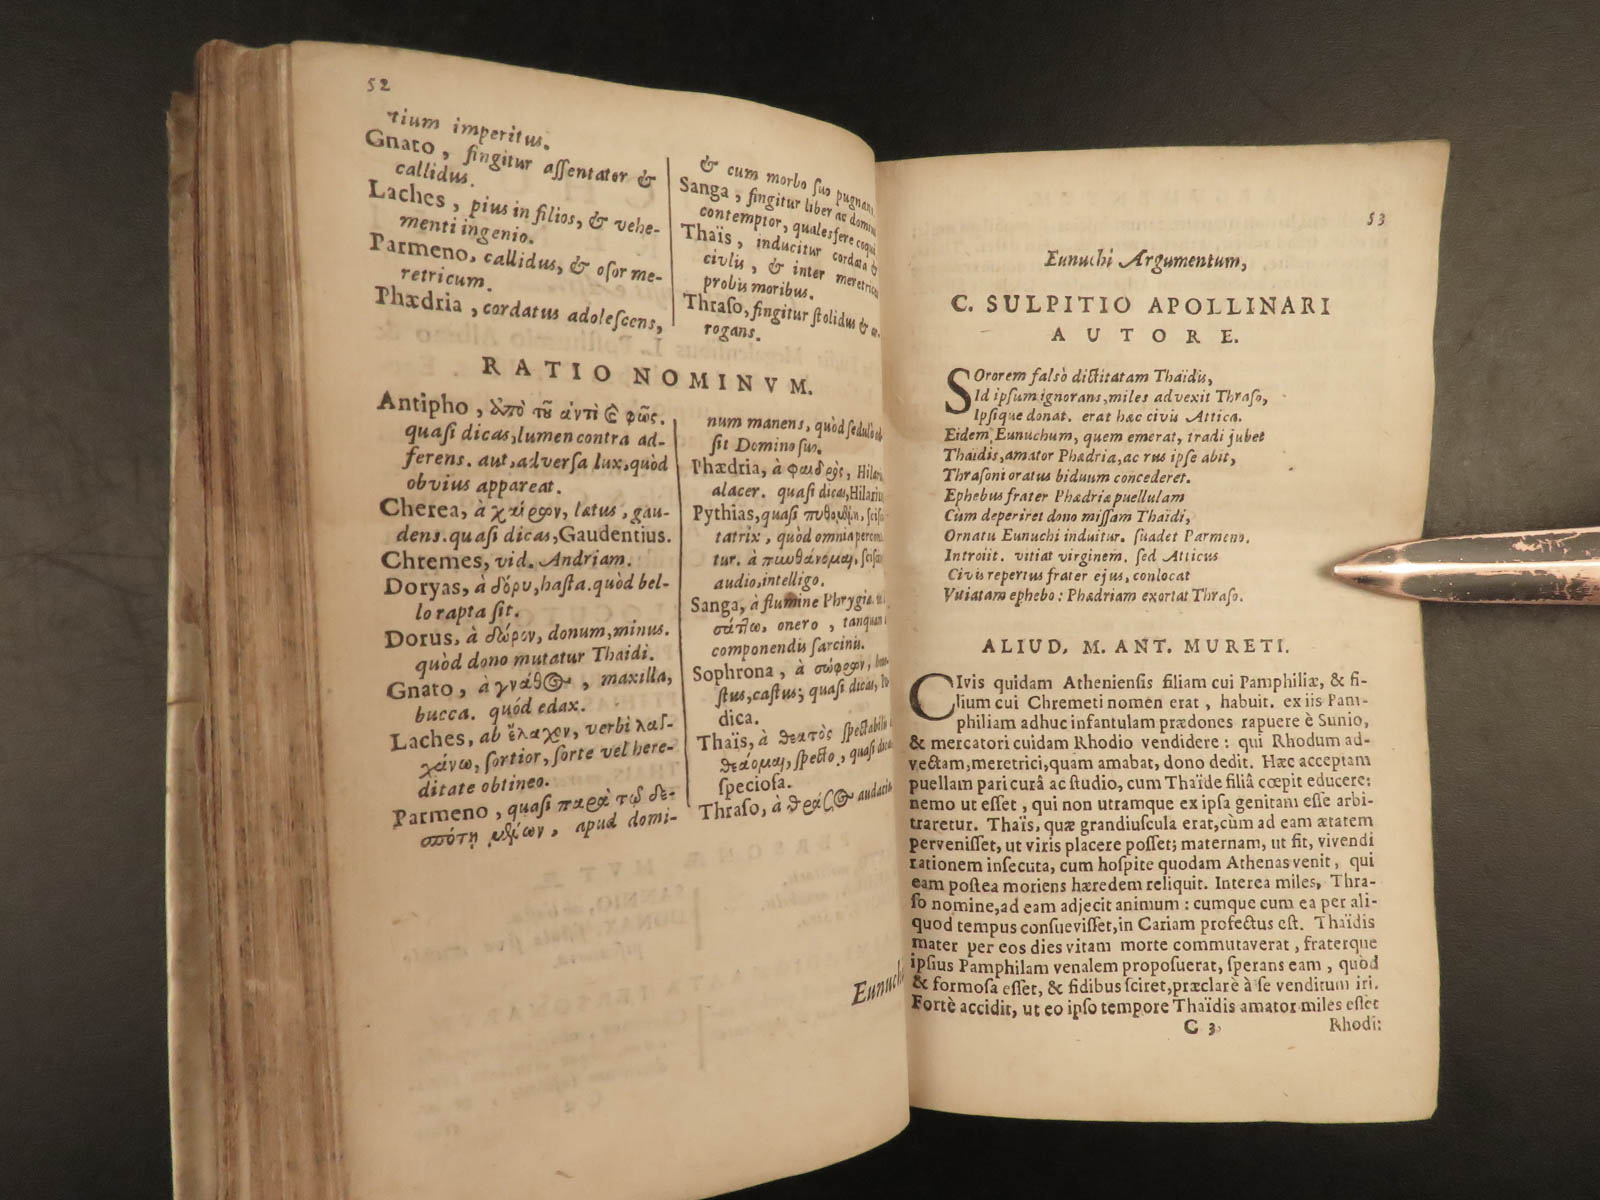 52
tium imperitus.
Gnato, fingitur assentator &
callidus.
Laches, pius in filios, & vehe-
menti ingenio.
Parmeno, callidus, & osor me-
retricum.
Phædria, cordatus adolescens,
& cum morbo suo pugnans.
Sanga, fingitur liber ac domini
contemptor, quales fere coqui
Thaïs, inducitur cordata &
civlis, & inter meretrices
probis moribus.
Thraso, fingitur stolidus & ar-
rogans.
RATIO NOMINVM.
Antipho, ἀπὸ τοῦ ἀντὶ & φῶς.
quasi dicas, lumen contra ad-
ferens. aut, adversa lux, quòd
obvius appareat.
Cherea, à χαίρων, lætus, gau-
dens. quasi dicas, Gaudentius.
Chremes, vid. Andriam.
Doryas, à δόρυ, hasta. quòd bel-
lo rapta sit.
Dorus, à δῶρον, donum, minus.
quòd dono mutatur Thaidi.
Gnato, à γνάθος, maxilla,
bucca. quód edax.
Laches, ab ἔλαχον, verbi λαγ-
χάνω, sortior, sorte vel here-
ditate obtineo.
Parmeno, quasi παρὰ τῷ δε-
σπότῃ μένων, apud domi-
num manens, quòd sedulò
sit Domino suo.
Phædria, à φαιδρὸς, Hilaris
alacer. quasi dicas, Hilarius
Pythias, quasi
tatrix, quòd omnia
tur. à πυνθάνομαι,
audio, intelligo.
Sanga, à flumine Phrygiæ
σάττω, onero, tanquam
componendis sarcinis.
Sophrona, à σώφρων,
stus, castus; quasi dicas, Pu-
dica.
Thaïs, à θεατὸς spectabilis
θεάομαι, specto, quasi dicas
speciosa.
Thraso, à θράσος audacia
Eunuchi
53
Eunuchi Argumentum,
C. SULPITIO APOLLINARI
AUTORE.
SOrorem falsò dictitatam Thaïdis,
Id ipsum ignorans, miles advexit Thraso,
Ipsique donat. erat hæc civis Attica.
Eidem Eunuchum, quem emerat, tradi jubet
Thaidis, amator Phædria, ac rus ipse abit,
Thrasoni oratus biduum concederet.
Ephebus frater Phædriæ puellulam
Cùm deperiret dono missam Thaïdi,
Ornatu Eunuchi induitur. suadet Parmeno.
Introiit. vitiat virginem. sed Atticus
Civis repertus frater ejus, conlocat
Vitiatam ephebo: Phædriam exortat Thraso.
ALIUD, M. ANT. MURETI.
CIvis quidam Atheniensis filiam cui Pamphiliæ, & fi-
lium cui Chremeti nomen erat, habuit. ex iis Pam-
philiam adhuc infantulam prædones rapuere è Sunio,
& mercatori cuidam Rhodio vendidere: qui Rhodum ad-
vectam, meretrici, quam amabat, dono dedit. Hæc acceptam
puellam pari curâ ac studio, cum Thaïde filiâ cœpit educere:
nemo ut esset, qui non utramque ex ipsa genitam esse arbi-
traretur. Thaïs, quæ grandiuscula erat, cùm ad eam ætatem
pervenisset, ut viris placere posset; maternam, ut fit, vivendi
rationem insecuta, cum hospite quodam Athenas venit, qui
eam postea moriens hæredem reliquit. Interea miles, Thra-
so nomine, ad eam adjecit animum: cumque cum ea per ali-
quod tempus consuevisset, in Cariam profectus est. Thaïdis
mater per eos dies vitam morte commutaverat, fraterque
ipsius Pamphilam venalem proposuerat, sperans eam, quòd
& formosa esset, & fidibus sciret, præclarè à se venditum iri.
Fortè accidit, ut eo ipso tempore Thaïdis amator miles esset
C 3
Rhodi: